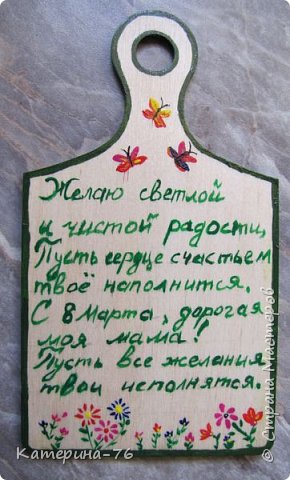 Желаю светлой
и чистой радости,
Пусть сердце счастьем
твоё наполнится.
С 8 Марта, дорогая
моя мама!
Пусть все желания
твои исполнятся.
Катерина-76
© Страна Мастеров